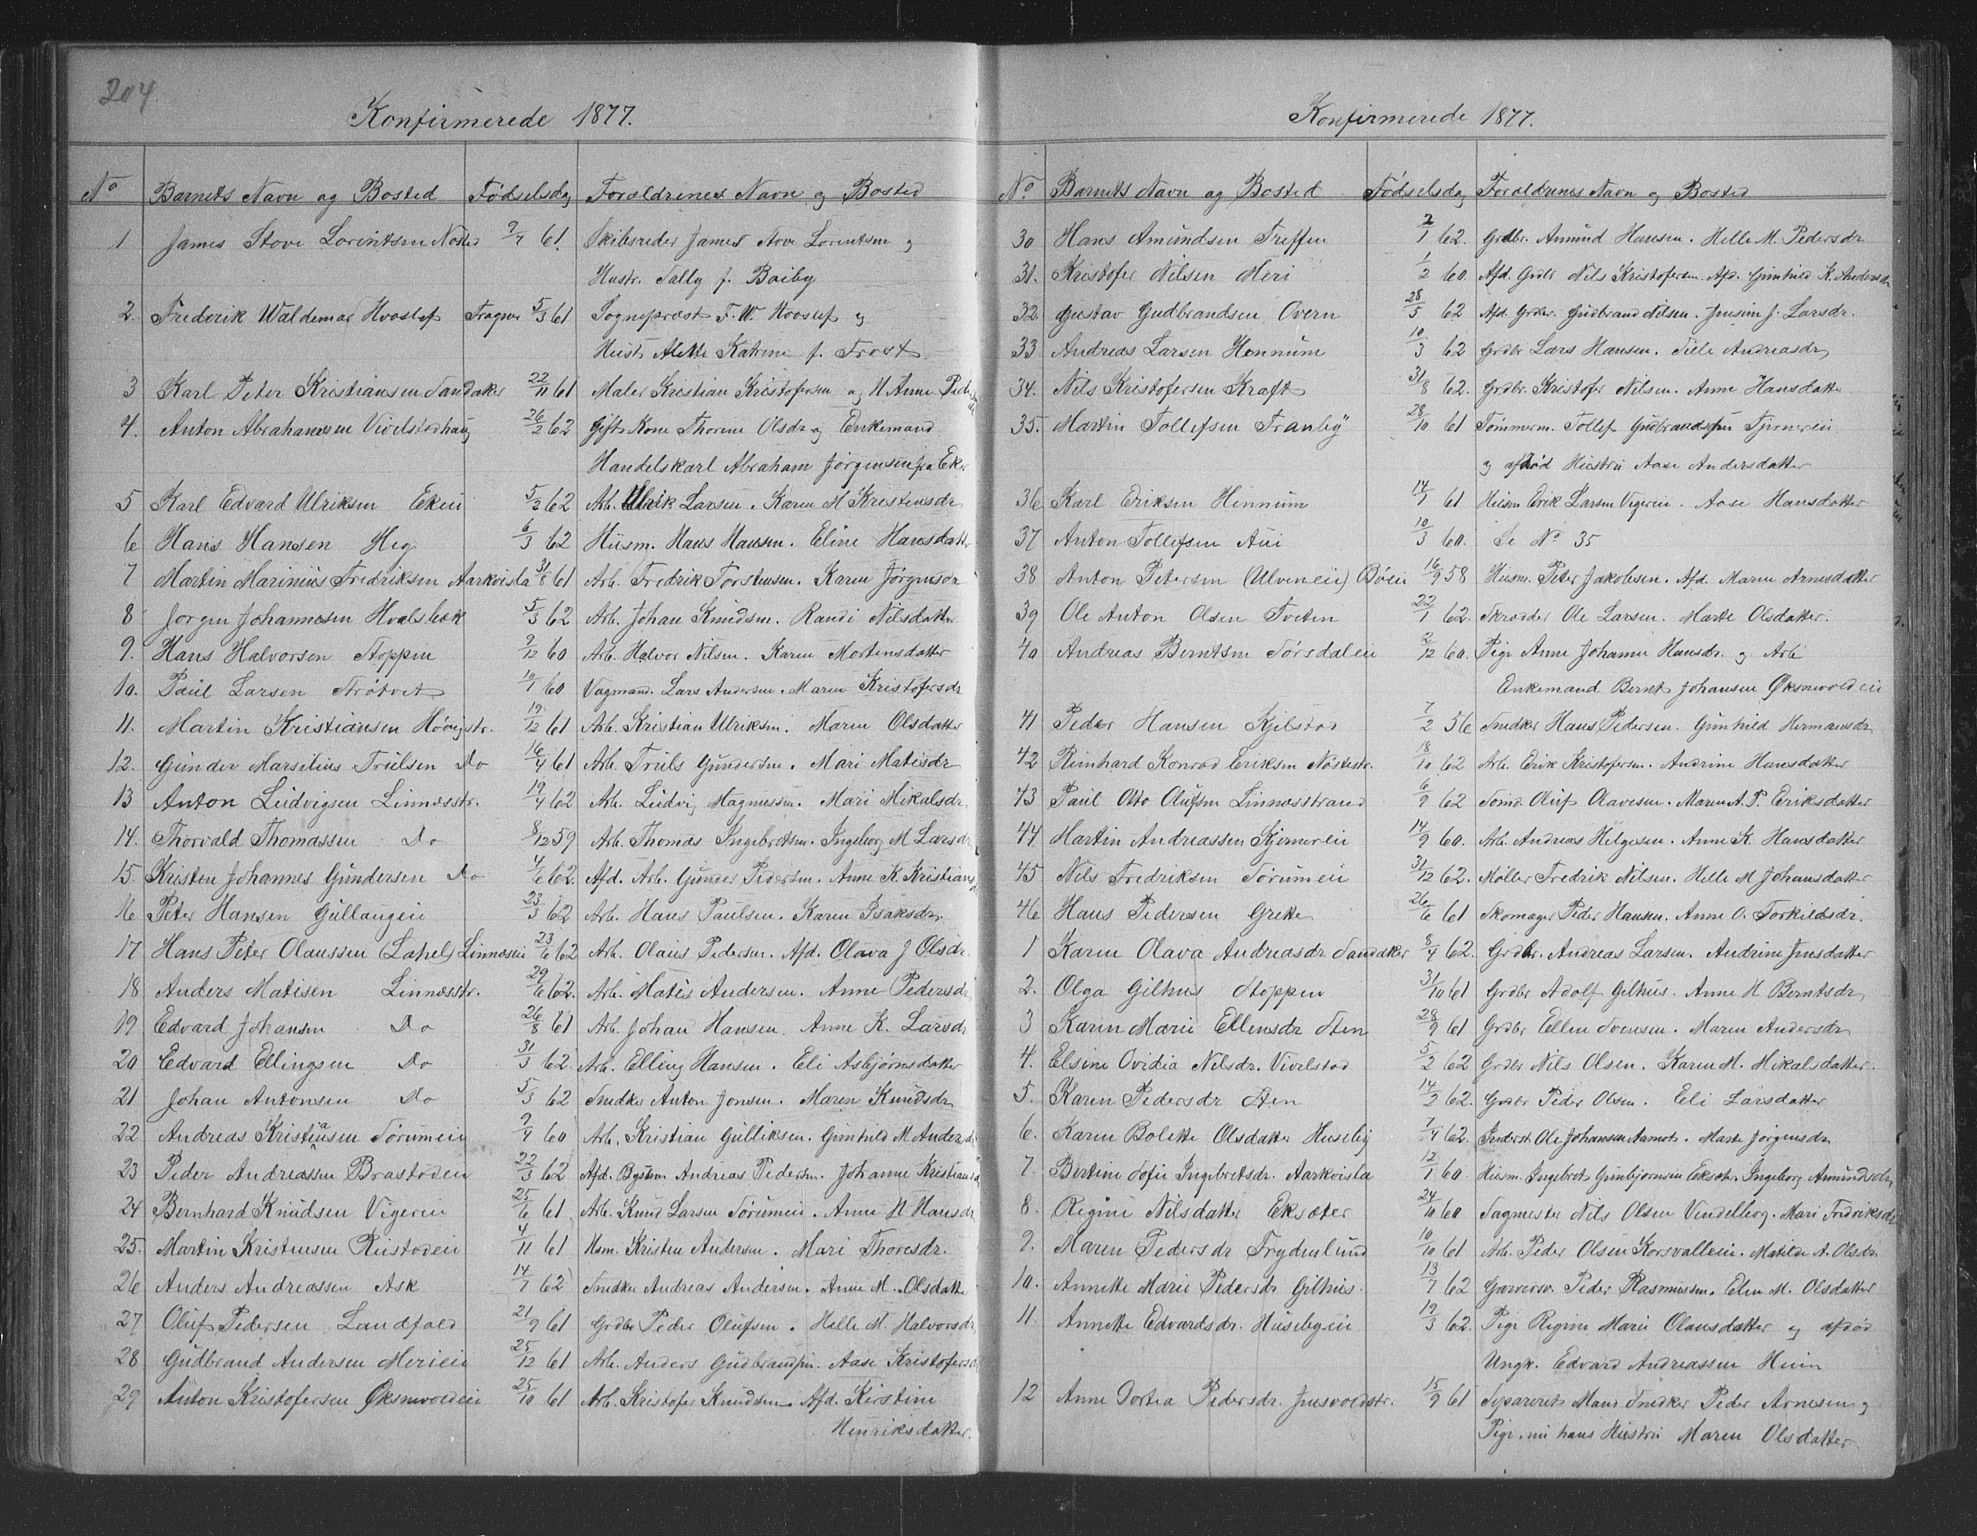 204
Konfirmerede 1877.
No Barnets Navn og Bosted Fødselsdag Forældrenes Navn og Bosted
1 James Stove Lorentsen Nøsted 9/7 61. Skibsreder James Stove Lorentsen og
Hustr. Tally f. Boiby
2. Frederik Waldemar Hvoslef Fragner 5/3 61 Sognepræst F. W. Hvoslef og
Hustr. Alette Katrine f. Frost.
3 Karl Peter Kristiansen Sandaker 22/11 61 Maler Kristian Kristofersen og H. Anne Peders
4. Anton Abrahamsen Vivelstadhaug 26/2 62 Gift Kone Thorine Olsdr og Enkemand
Handelskarl Abraham Jørgensen fra Eker
5 Karl Edvard Ulriksen Ekeii 5/2 62 Arb. Ulrik Larsen. Karen M Kristensdr
6 Hans Hansen Heg 6/3 62 Husm. Hans Hansen. Eline Hansdatter
7 Martin Marinius Fredriksen Aarkvisla 31/8 61 Arb. Fredrik Torstensen. Karen Jørgensdr
8 Jørgen Johannesen Hvalsbæk 5/3 62 Arb. Johan Knudsen. Randi Nilsdatter
9. Hans Halvorsen Stoppen 9/12 60 Arb. Halvor Nilsen. Karen Mortensdatter
10. Paul Larsen Strøtvet 14/1 60 Vogmand. Lars Andersen. Maren Kristofersdr
11. Martin Kristiansen Høvigstr. 19/12 61 Arb. Kristian Ulriksen. Maren Olsdatter
12. Gunder Marselius Trulsen Do 16/4 61 Arb. Truls Gundersen. Mari Matisdr
13 Anton Ludvigsen Linnæsstr. 19/4 62 Arb. Ludvig Magnussen. Mari Mikalsdr.
14. Thorvald Thomassen Do 8/12 59 Arb. Thomas Ingebretsen. Ingeborg M Larsdr
15. Kristen Johannes Gundersen Do 4/6 62. Afd. Arb. Gunder Pedersen. Anne K Kristiansd
16 Peter Hansen Gullaugeii 23/3 62 Arb. Hans Paulsen. Karen Isaksdr.
17 Hans Peter Olaussen (Lahel) Linnæseii 23/6 62 Arb. Olaus Pedersen. Afd. Olava J Olsdr.
18 Anders Matisen Linnæsstr. 29/6 62. Arb. Matis Andersen. Anne Pedersdr
19 Edvard Johansen Do 26/8 61 Arb. Johan Hansen. Anne K. Larsdr
20 Edvard Ellingsen Do 31/3 62. Arb. Elling Hansen. Eli Asbjørnsdatter
21 Johan Antonsen Do 5/3 62 Snedker Anton Jonsen. Maren Knudsdr
22 Andreas Kristiansen Sørumeii 9/4 60 Arb. Kristian Gulliksen. Gunhild M Anders
23 Peder Andreassen Brastadeii 22/3 62 Afd. Bygsm. Andreas Pedersen. Johanne Kristians
24 Bernhard Knudsen Vigereii 25/6 61 Arb. Knud Larsen Sørumeii. Anne H Hansdr
25. Martin Kristensen Ristadeii 4/11 61 Hsm. Kristen Andersen. Mari Thoresdr.
26 Anders Andreassen Ask 14/1 62 Snedker Andreas Andersen. Anne M. Olsdatter
27 Oluf Pedersen Landfald 21/9 61 Grdbr Peder Olufsen. Helle M. Halvorsdr
28 Gudbrand Andersen Merieii 25/12 61 Arb. Anders Gudbrandsen. Aase Kristofersd
29 Anton Kristofersen Øksnevoldeii 25/10 61 Arb. Kristofer Knudsen. Afd. Kirstine
Henriksdatter.
Konfirmerede 1877.
No. Barnets Navn og Bosted Fødselsdag Forældrenes Navn og Bosted
30 Hans Amundsen Treffen 2/1 62. Grdbr. Amund Hansen. Helle M. Pedersdr
31. Kristofer Nilsen Meri 1/2 60. Afd. Grdbr Nils Kristofersen. Afd. Gunhild K. Andersdr
32 Gustav Gudbrandsen Overn 28/5 62 Afd. Grdbr. Gudbrand Nilsen. Larsdr.
33 Andreas Larsen Hennum 10/3 62 Grdbr Lars Hansen. Sille Andreasdr
34. Nils Kristofersen Kraft 31/8 62. Grdbr. Kristofer Nilsen. Anne Hansdatter
35. Martin Tollefsen Tranby 28/10 61 Tømmerm. Tollef Gudbrandsen Tjerneeii
og afdød Hustru Aase Andersdatter
36 Karl Eriksen Hennum 14/1 61 Husm Erik Larsen Vigereii. Aase Hansdatter
37 Anton Tollefsen Aui 10/3 60. Se No 35
38 Anton Petersen (Ulveneii) Bøeii 16/9 58 Husm. Peter Jakobsen. Afd. Maren Arnesdatter
39 Ole Anton Olsen Tveten 22/1 62. Skrædder Ole Larsen. Marte Olsdatter.
40 Andreas Berntsen Torsdaleii 2/12 60. Pige Anne Johanne Hansdr. og Arb
Enkemand Bernt Johansen Øksnevoldeii
41 Peder Hansen Kjilstad 7/2 56 Snedker Hans Pedersen. Gunhild Hermansdr
42 Reinhard Konrad Eriksen Nøstestr. 18/10 62 Arb. Erik Kristofersen. Andrine Hansdatter
43 Paul Otto Olufsen Linnæsstrand 6/9 62 Tømd. Oluf Olavesen. Maren A. P. Eriksdatter
44. Martin Andreassen Kjemereii 14/9 60. Arb. Andreas Helgesen. Anne K. Hansdatter
45 Nils Fredriksen Sørumeii 31/12 62. Møller Fredrik Nilsen. Helle M Johansdatter
46 Hans Pedersen Grette 26/6 61 Skomager Peder Hansen. Anne O. Torkildsdr.
1 Karen Olava Andreasdr Sandaker 8/4 62. Grdbr. Andreas Larsen. Andrine Jensdatter
2. Olga Gilhus Stoppen 31/10 61 Grdbr Adolf Gilhus. Anne H Berntsdr
3 Karen Marie Ellensdr Sten 28/9 61 Grdbr Ellen Svensen. Maren Andersdr
4. Elsine Ovidia Nilsdr. Vivelstad 5/2 62 Grdbr Nils Olsen. Karen M. Mikalsdatter.
5. Karen Pedersdr Sten 14/2 62. Grdbr Peder Olsen. Eli Larsdatter
6. Karen Bolette Olsdatter Huseby 7/4 62. Inderst. Ole Johansen Aamot. Marte Jørgensdr
7. Bertine Sofie Ingebretsdr. Aarkvisla 12/1 60. Husm. Ingebret Gunbjørnsen Eksetr. Ingeborg Amundsdr
8. Regine Nilsdatter Eksæter 24/10 60 Sagmester Nils Olsen Vendelborg. Mari Fredriksdr
9. Maren Pedersdr Frydenlund 10/10 61 Arb. Peder Olsen Korsvalleii. Matilde A. Olsdr
10. Annette Marie Pedersdr Gilhus. 13/7 62 Garversv. Peder Rasmussen. Elen M. Olsdatter
11. Annette Edvardsdr. Husebyeii 19/3 62. Pige Regine Marie Olausdatter og afdød
Ungk. Edvard Andreassen Huun
12 Anne Dortea Pedersdr. Jusvoldstr. 15/9 61 Separeret Mand Snedker Peder Arnesen og
Pige. nu hans Hustru Maren Olsdatter.